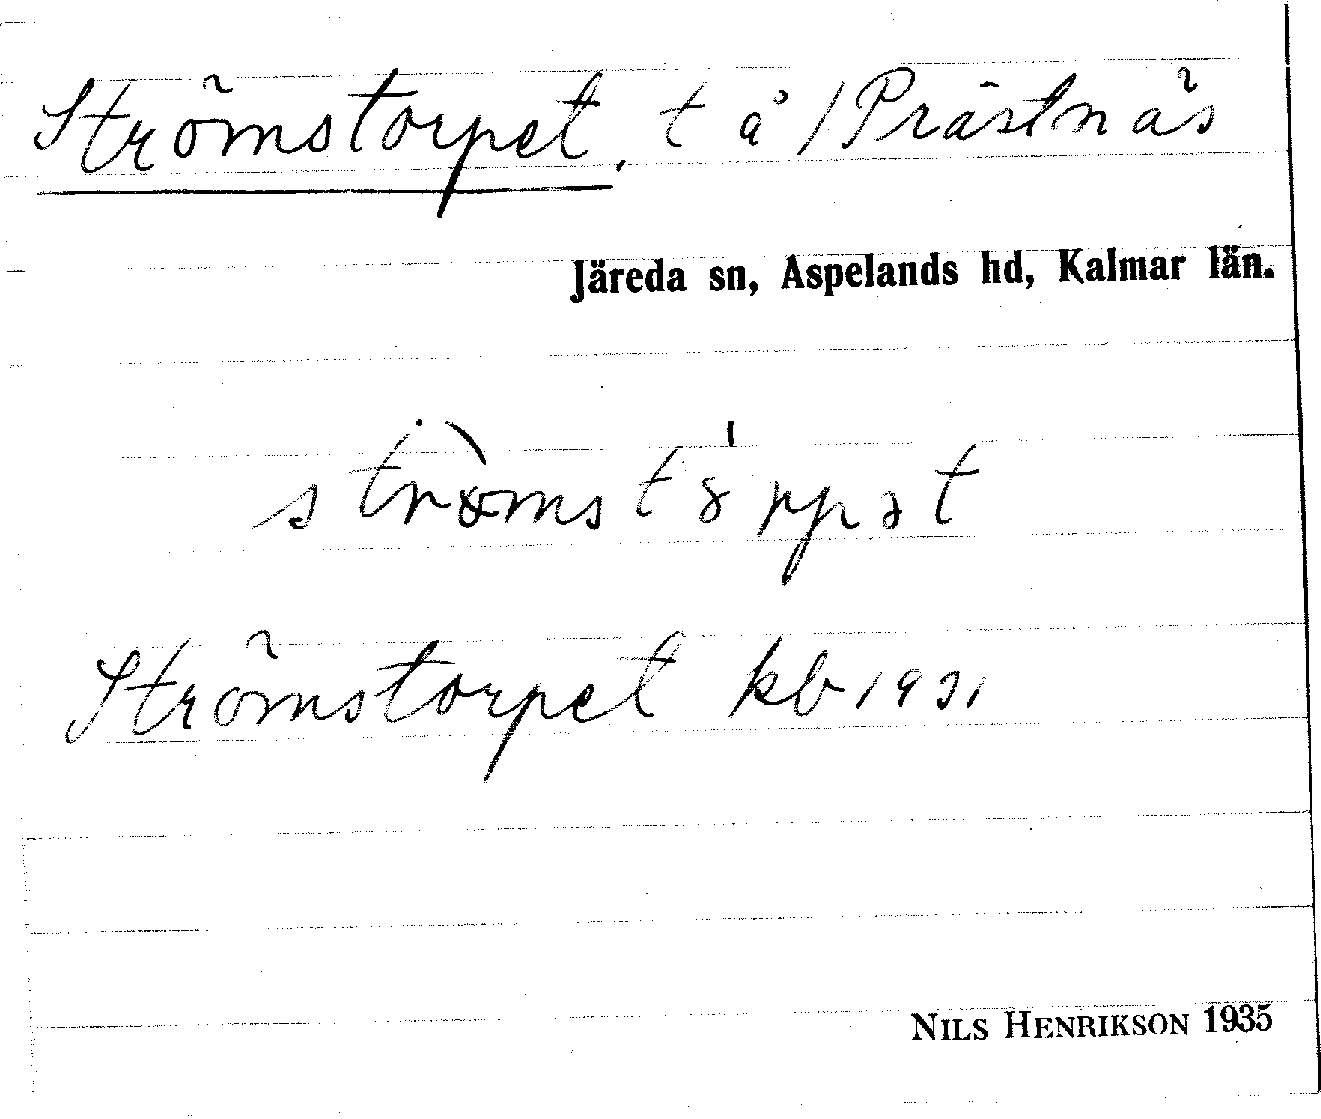 Strömstorpet, t å /Prästnäs
Järeda sn, Aspelands hd, Kalmar län.
Strömstorpet kb 1931
NILS HENRIKSON 1935